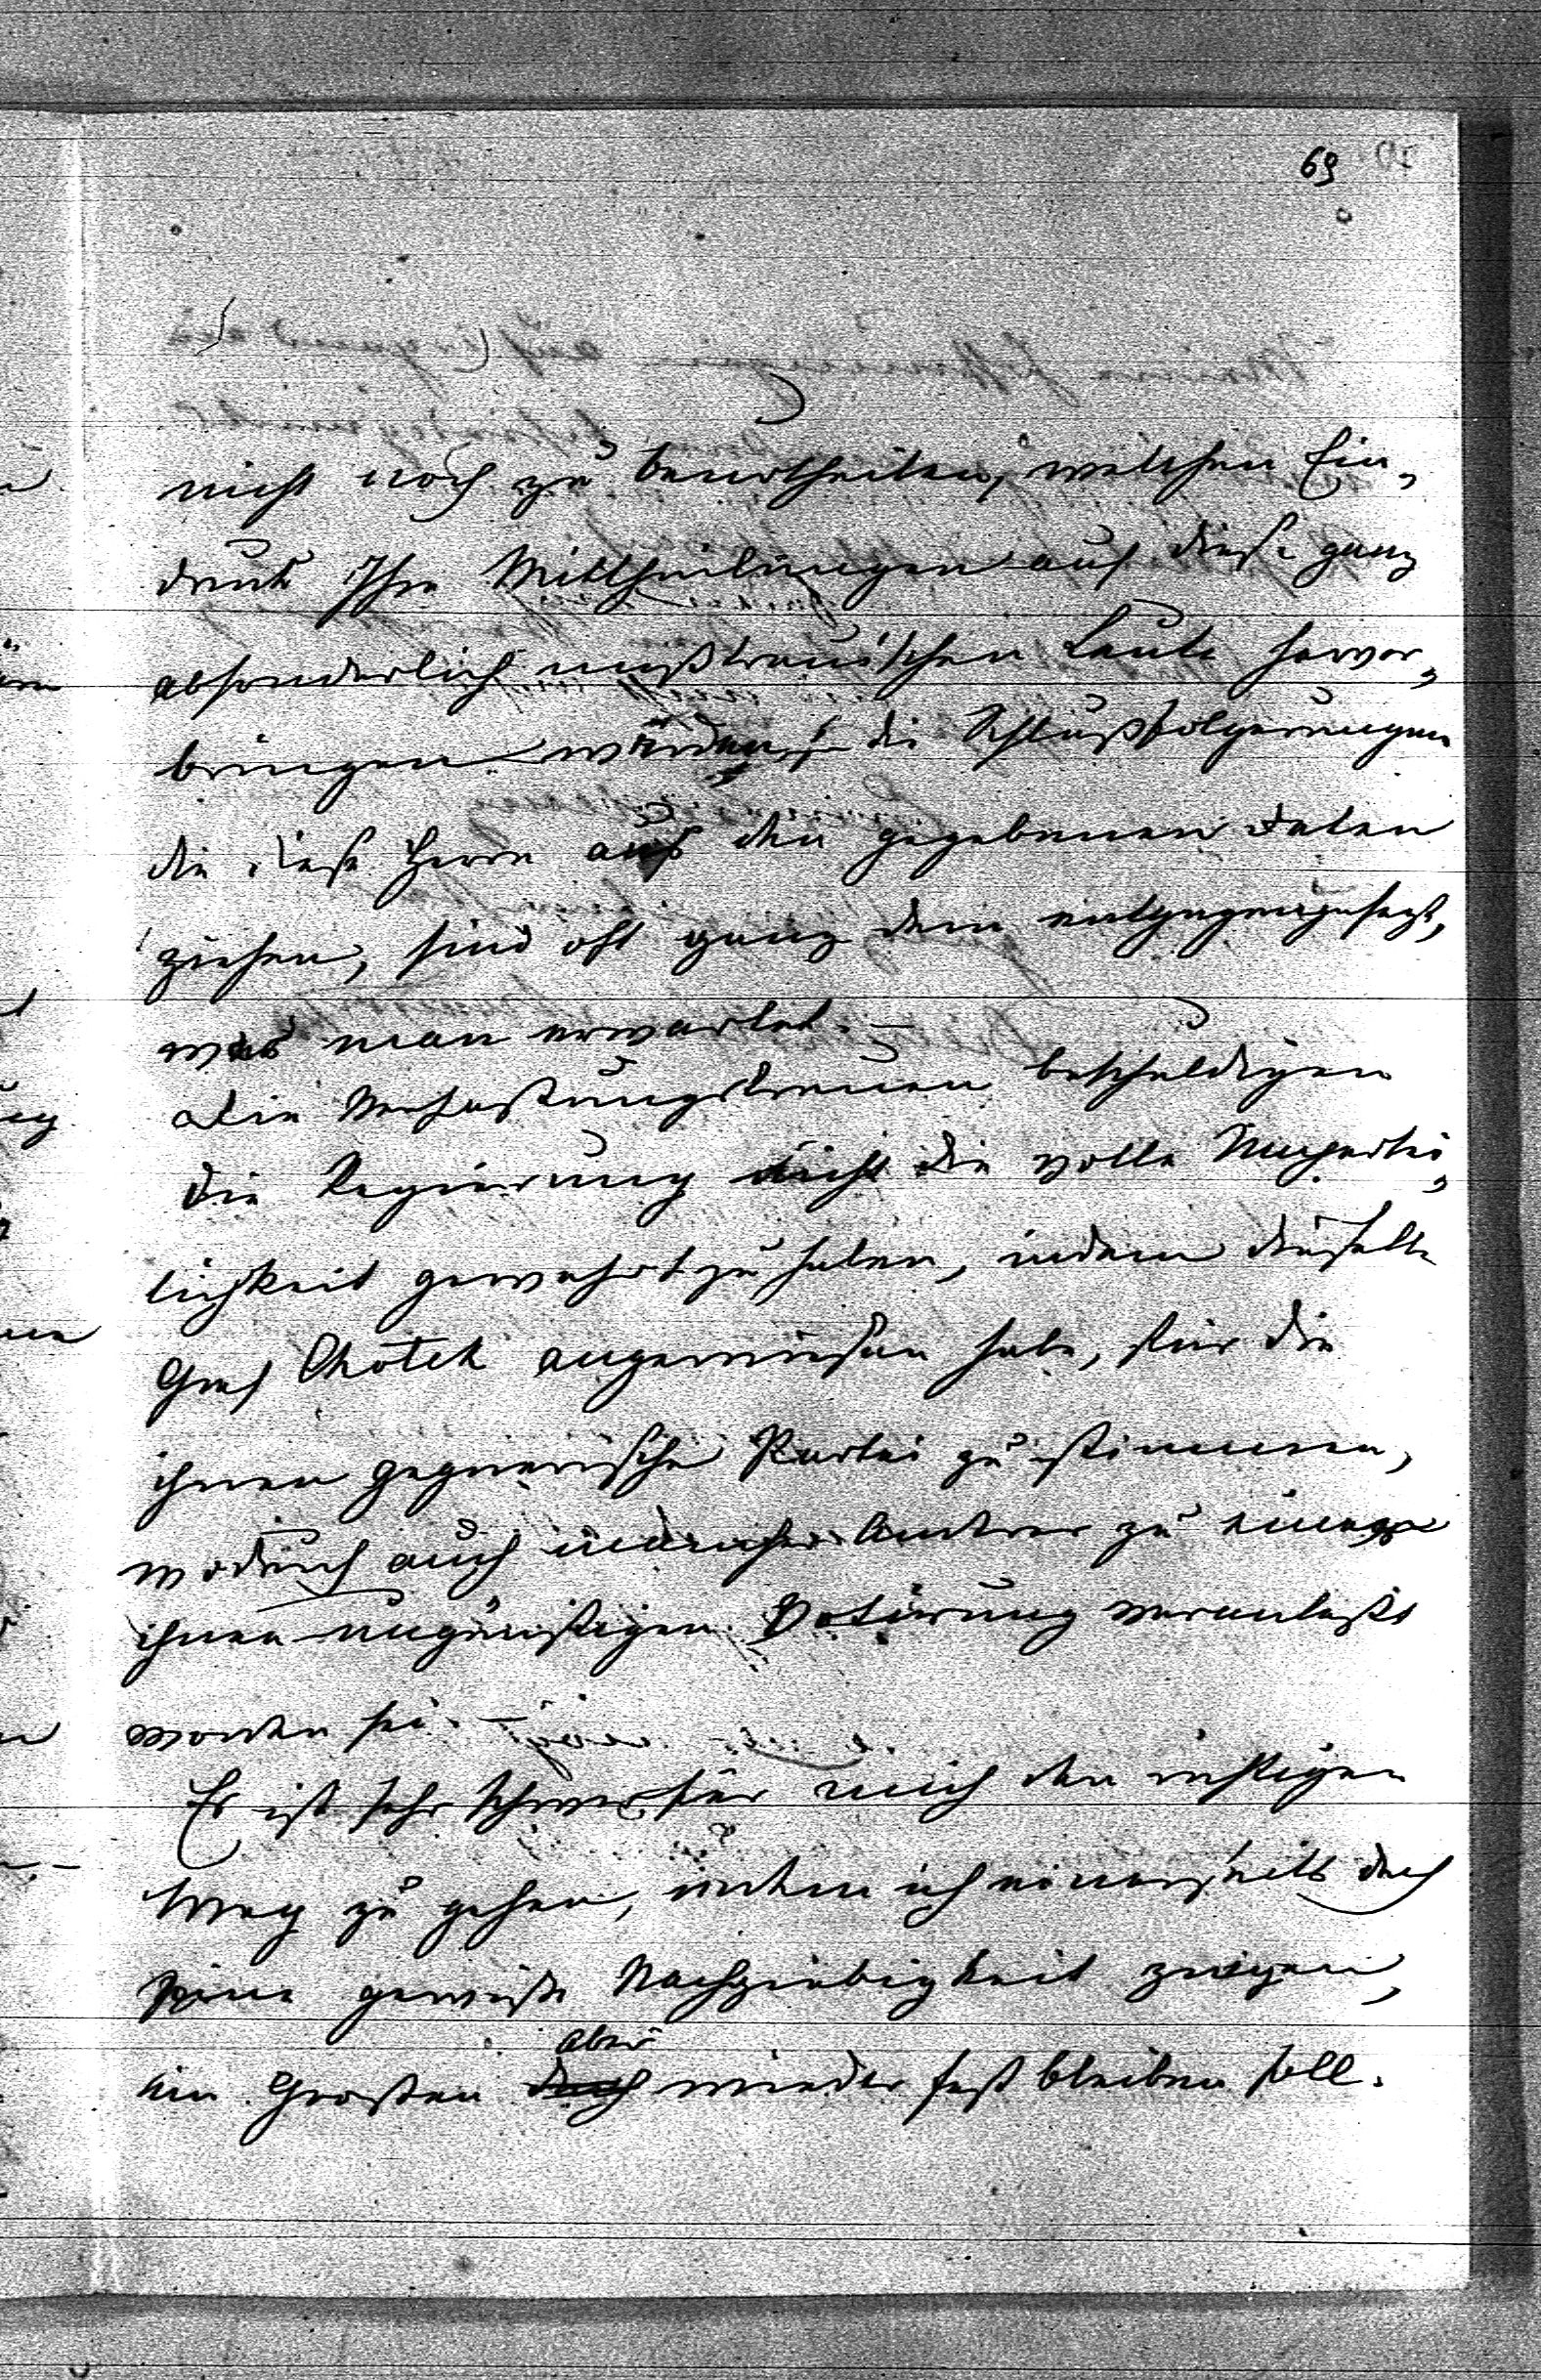 69
nicht noch zu beurtheilen, welchen Ein-
druck Ihre Mittheilungen auf diese ganz
absonderlich mißtrauischen Leute hervor-
bringen würden, die Schlußfolgerungen
die diese Herrn aus den gegebenen Daten
ziehen, sind oft ganz dem entgegengesetzt,
was man erwartet. —
Die Verfassungstreuen beschuldigen
die Regierung nicht die volle Unpartei-
lichkeit gewahrt zu haben, indem dieselbe
Graf Chotek angewiesen habe, für die
ihnen gegnerische Partei zu stimmen,
wodurch auch mancher Andrer zu einer
ihnen ungünstigen Votirung veranlaßt
worden sei. —
Es ist sehr schwer für mich den richtigen
Weg zu gehen, indem ich einerseits doch
eine gewisse Nachgiebigkeit zeigen,
aber
im Großen doch wieder fest bleiben soll.